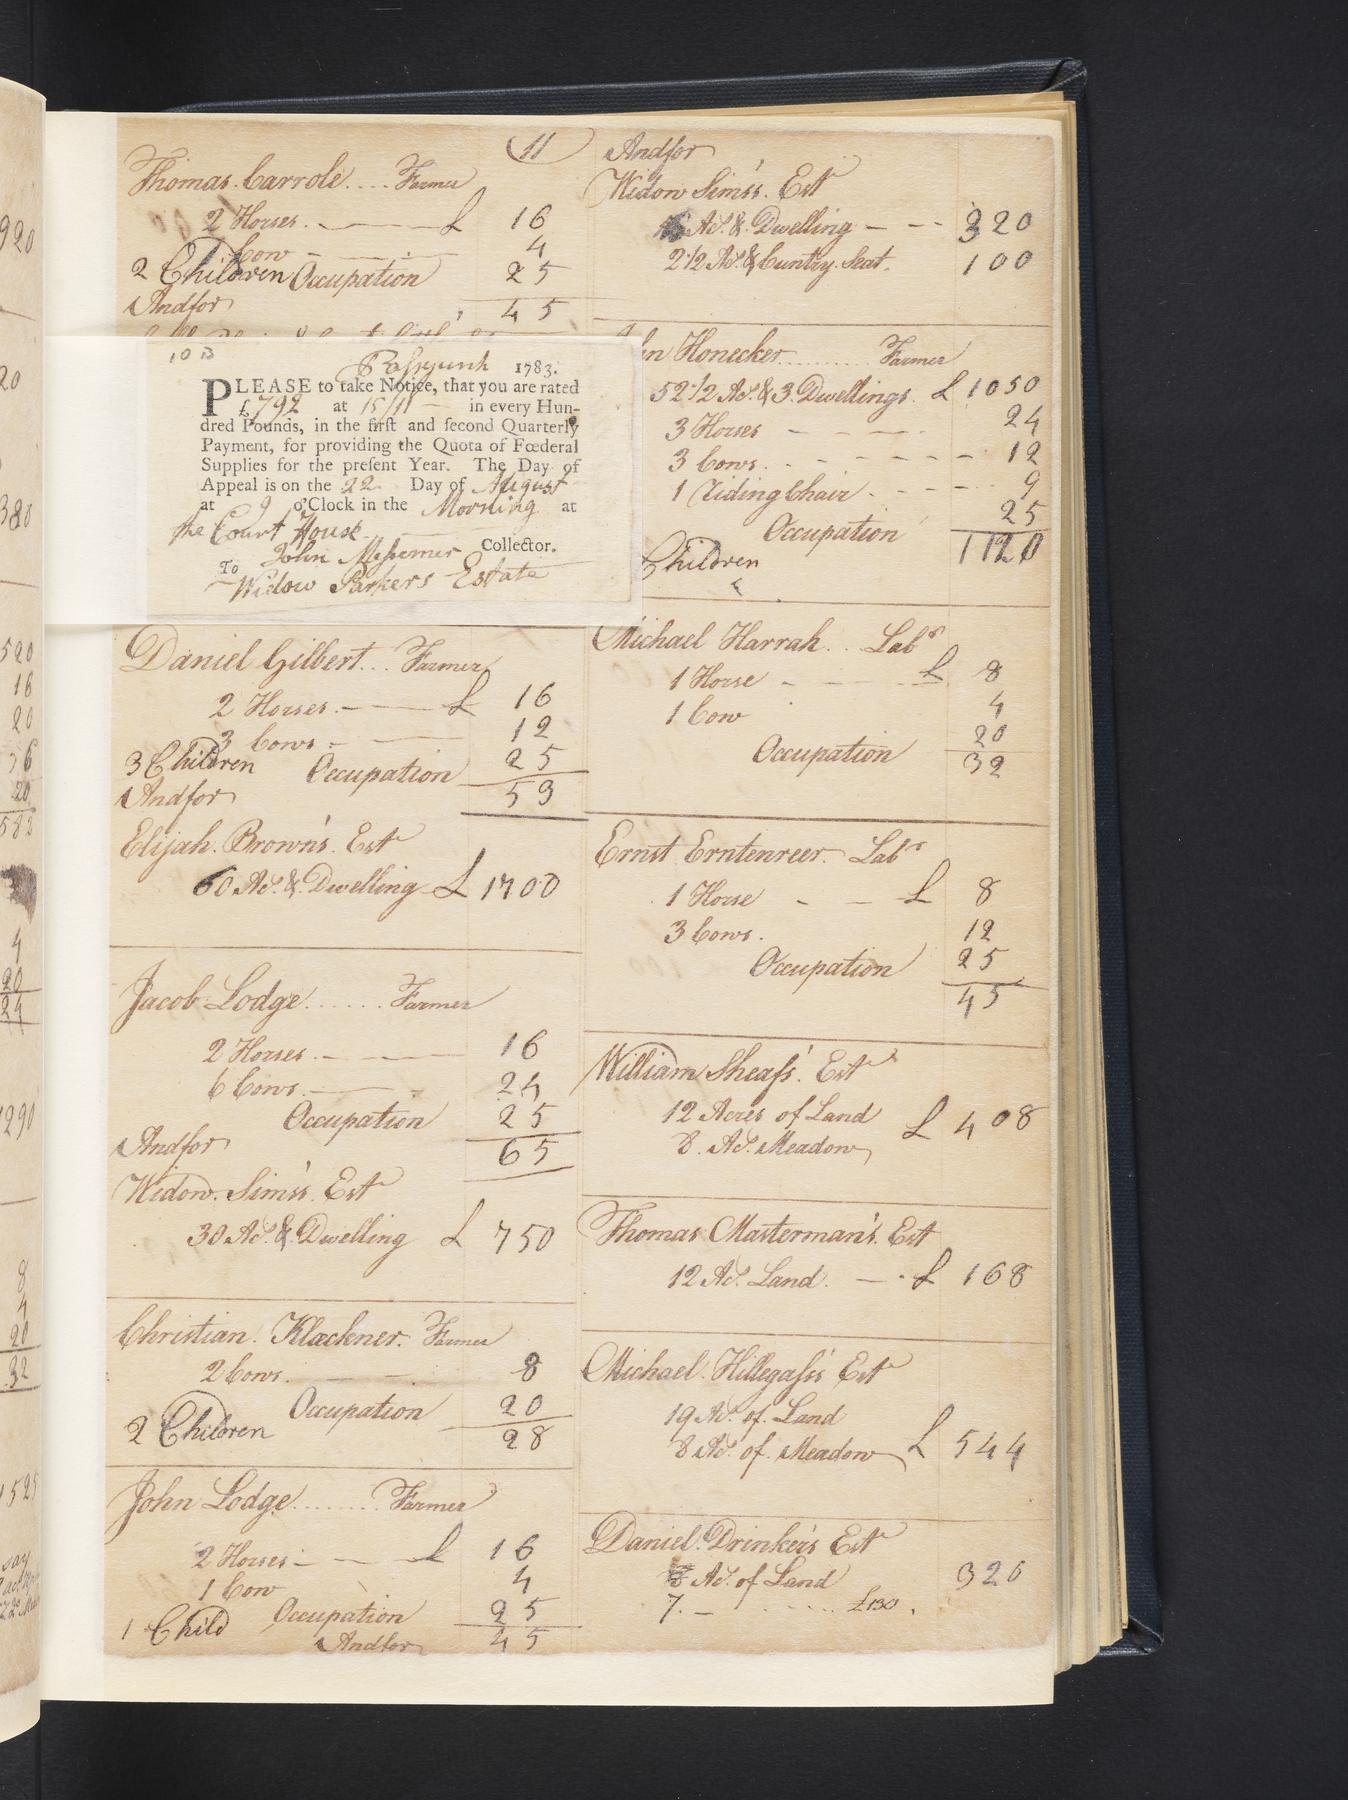 11
Thomas Carrole.... Farmer
2 Horses. £ 16
1 Cow 4
2 Children Occupation 25
Andfor 45
10 B
Passyunk 1783.
PLEASE to take Notice, that you are rated
£792 at 15/11 in every Hun-
dred Pounds, in the first and second Quarterly
Payment, for providing the Quota of Fœderal
Supplies for the present Year. The Day of
Appeal is on the 22 Day of August
at 9 o'Clock in the Morning at
the Court House
John Messemer Collector.
To
Widow Parkers Estate
Daniel Gilbert... Farmer
2 Horses. £ 16
3 Cows 12
3 Children Occupation 25
Andfor 53
Elijah. Brown's. Est
60 Acs. & Dwelling £ 1700
Jacob Lodge...... Farmer
2 Horses. 16
6 Cows. 24
Occupation 25
Andfor 65
Widow. Sims's. Est
30 Acs. & Dwelling £ 750
Christian. Klackner. Farmer
2 Cows. 8
Occupation 20
2 Children 28
John Lodge....... Farmer
2 Horses £ 16
1 Cow 4
1 Child Occupation 25
Andfor 45
Andfor
Widow Sims's. Est
Acs. & Dwelling 320
2 1/2 Acs. & Cuntry. Seat. 100
Honecker......... Farmer
52 1/2 Acs. & 3. Dwellings. £ 1050
3 Horses 24
3 Cows. 12
1 Riding Chair 9
Occupation 25
Children 1120
Michael Harrah... Labr
1 Horse £ 8
1 Cow 4
Occupation 20
32
Ernst Erntenreer. Labr
1 Horse £ 8
3 Cows. 12
Occupation 25
45
William Sheaff's'. Est
12 Acres of Land £ 408
8. Acs. Meadow
Thomas Masterman's. Est
12 Acs. Land. £ 168
Michael. Hillegass's Est
19 Acs. of. Land
8 Acs. of. Meadow £ 544
Daniel. Drinker's Est
Acs. of Land 320
7. £130.